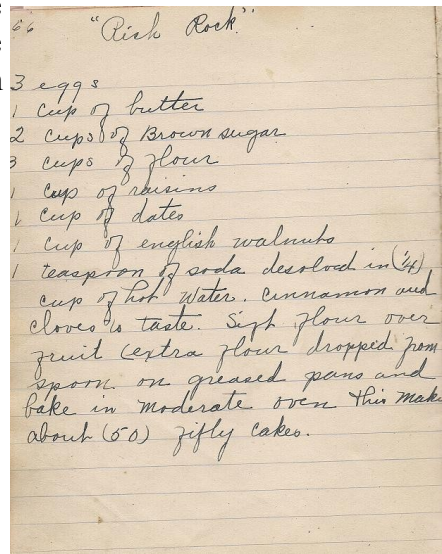 66 "Rish Rock"
3 eggs
1 cup of butter
2 cups of Brown sugar
3 cups of flour
1 cup of raisins
1 cup of dates
1 cup of english walnuts
1 teaspoon of soda desolved in (1/4)
cup of hot water. Cinnamon and
cloves to taste. Sift flour over
fruit (extra flour dropped from
spoon on greased pans and
bake in moderate oven This Make
about (50) fifty cakes.